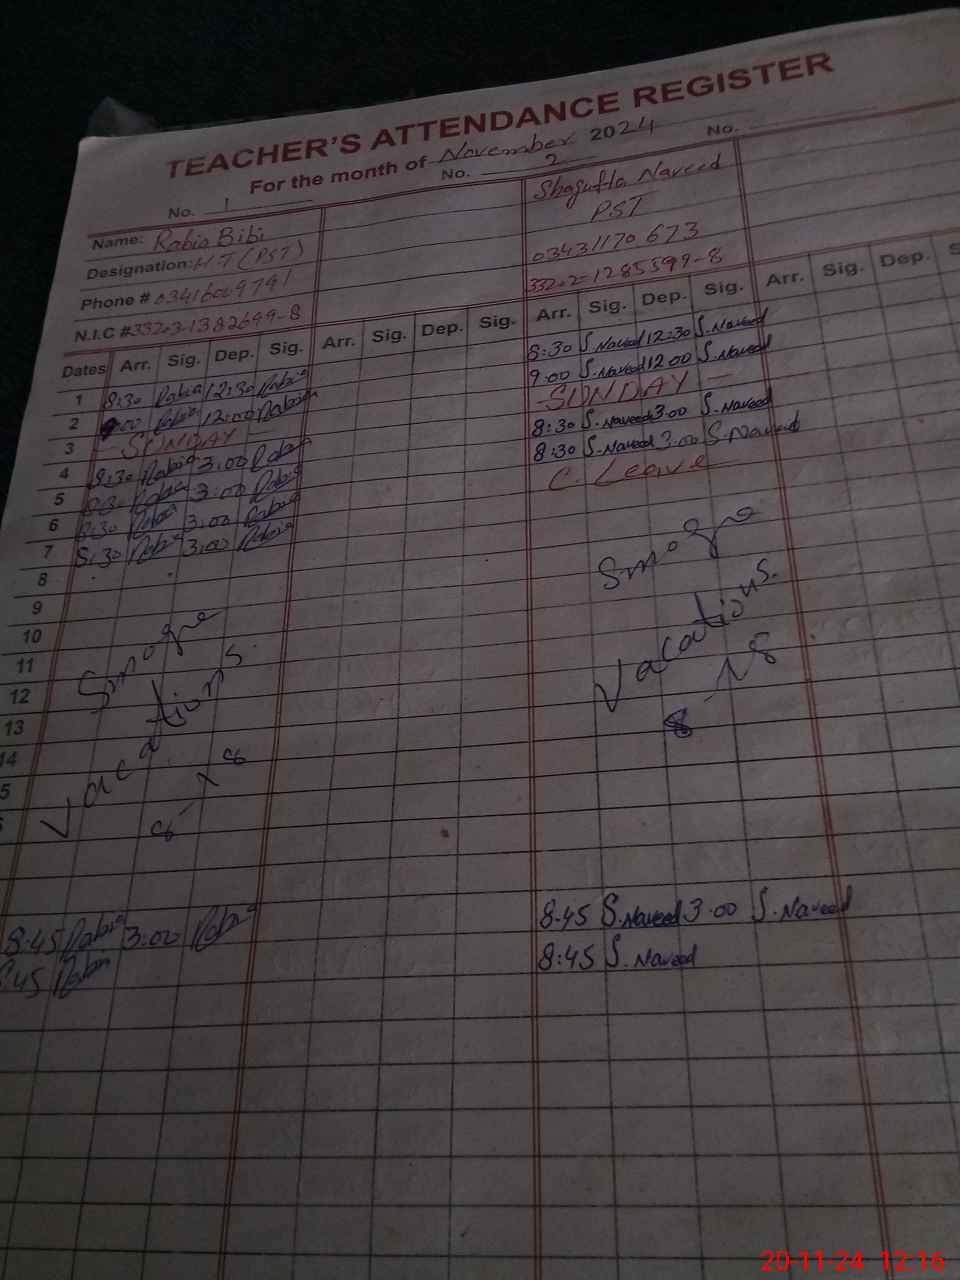 TEACHER'S ATTENDANCE REGISTER
For the month of November 2024
No. 1 No. 2 No.
Name: Rabia Bibi Shagufta Naveed
Designation: H.T (PST) PST
Phone # 03416009791 03431170673
N.I.C # 33203-1382699-8 33202-1285599-8
Dates Arr. Sig. Dep. Sig. Arr. Sig. Dep. Sig. Arr. Sig. Dep. Sig. Arr. Sig. Dep. S
1 8:30 Rabia 12:30 Rabia 8:30 S.Naveed 12:30 S.Naveed
2 9:00 Rabia 12:00 Rabia 9:00 S.Naveed 12:00 S.Naveed
3 - SUNDAY - - SUNDAY -
4 8:30 Rabia 3:00 Rabia 8:30 S.Naveed 3:00 S.Naveed
5 8:30 Rabia 3:00 Rabia 8:30 S.Naveed 3:00 S.Naveed
6 8:30 Rabia 3:00 Rabia C. Leave
7 8:30 Rabia 3:00 Rabia
8
9
10
11
12
13
14
5
Smoge Smoge
Vacations Vacations.
8-18 8-18
8:45 Rabia 3:00 Rabia 8:45 S.Naveed 3:00 S.Naveed
:45 Rabia 8:45 S.Naveed
20-11-24 12:16